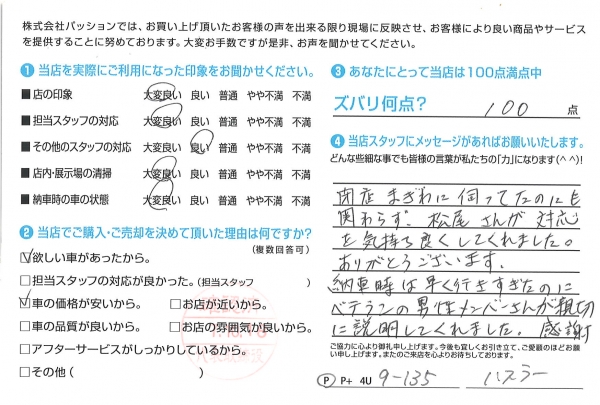 株式会社パッションでは、お買い上げ頂いたお客様の声を出来る限り現場に反映させ、お客様により良い商品やサービス
を提供することに努めております。大変お手数ですが是非、お声を聞かせてください。
1 当店を実際にご利用になった印象をお聞かせください。
■店の印象 大変良い 良い 普通 やや不満 不満
■担当スタッフの対応 大変良い 良い 普通 やや不満 不満
■その他のスタッフの対応 大変良い 良い 普通 やや不満 不満
■店内・展示場の清掃 大変良い 良い 普通 やや不満 不満
■納車時の車の状態 大変良い 良い 普通 やや不満 不満
2 当店でご購入・ご売却を決めて頂いた理由は何ですか?
(複数回答可)
☑欲しい車があったから。
□担当スタッフの対応が良かった。(担当スタッフ )
☑車の価格が安いから。 □お店が近いから。
□車の品質が良いから。 □お店の雰囲気が良いから。
□アフターサービスがしっかりしているから。
□その他( )
3 あなたにとって当店は100点満点中
ズバリ何点? 100 点
4 当店スタッフにメッセージがあればお願いいたします。
どんな些細な事でも皆様の言葉が私たちの「力」になります(^^)!
閉店まぎわに伺ってたのにも
関わらず、松尾さんが対応
を気持ち良くしてくれました。
ありがとうございます。
納車時は早く行きすぎたのに
ベテランの男性メンバーさんが親切
に説明してくれました。感謝
ご協力に心より御礼申し上げます。今後も宜しくお引き立て、ご愛顧のほどお願
い申し上げます。またのご来店を心よりお待ちしております。
P P+ 4U 9-135 ハスラー